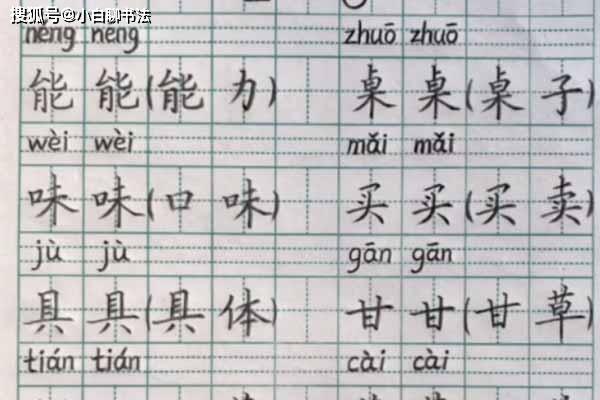 搜狐号@小白聊书法
néng néng zhuō zhuō
能 能(能 力) 桌 桌(桌 子)
wèi wèi mǎi mǎi
味 味(口 味) 买 买(买 卖)
jù jù gān gān
具 具(具 体) 甘 甘(甘 草)
tián tián cài cài